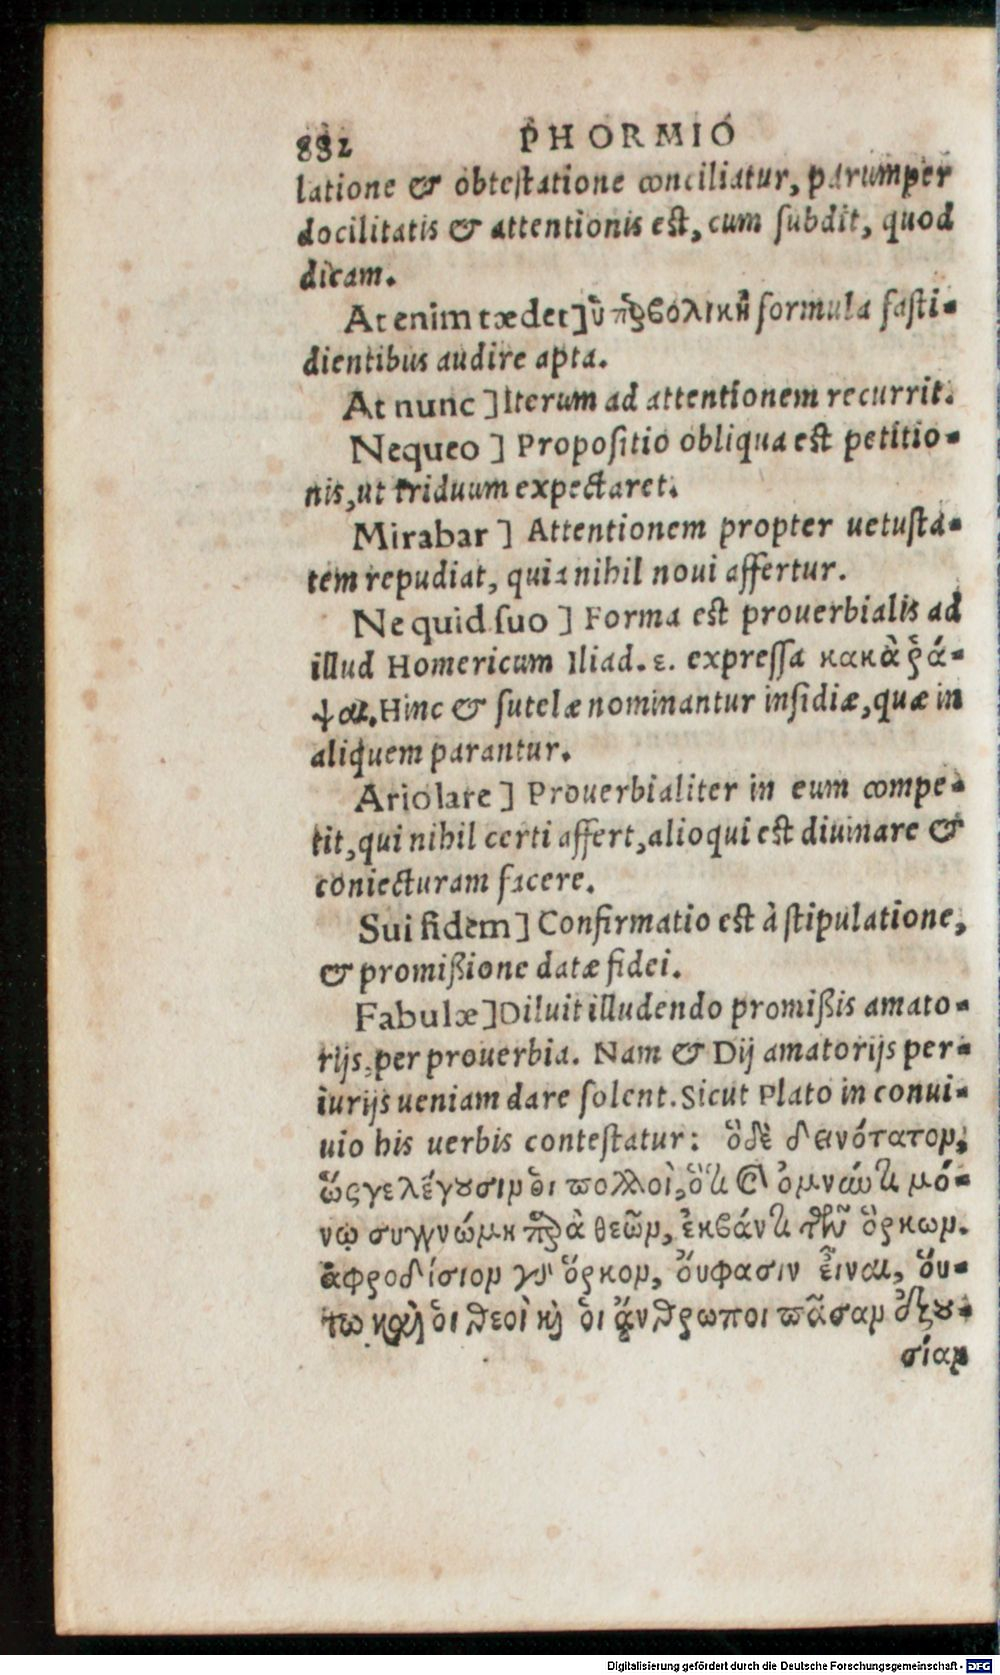 882 PHORMIO
latione & obtestatione conciliatur, parumper
docilitatis & attentionis est, cum subdit, quod
dicam.
At enim tædet] ὑπερβολικὴ formula fasti-
dientibus audire apta.
At nunc] Iterum ad attentionem recurrit.
Nequeo] Propositio obliqua est petitio-
nis, ut triduum expectaret.
Mirabar] Attentionem propter uetusta-
tem repudiat, quia nihil noui affertur.
Ne quid suo] Forma est prouerbialis ad
illud Homericum Iliad. ε. expressa κακὰ ῥά-
ψαι. Hinc & sutelæ nominantur insidiæ, quæ in
aliquem parantur.
Ariolare] Prouerbialiter in eum compe-
tit, qui nihil certi affert, alioqui est diuinare &
coniecturam facere.
Sui fidem] Confirmatio est à stipulatione,
& promißione datæ fidei.
Fabulæ] Diluit illudendo promißis amato-
rijs, per prouerbia. Nam & Dij amatorijs per-
iurijs ueniam dare solent. Sicut Plato in conui-
uio his uerbis contestatur: ὃ δὲ δεινότατον,
ὥς γε λέγουσιν ὁι πολλοὶ, ὅτι ὀμνύντι μό-
νῳ συγγνώμη παρὰ θεῶν, ἐκβάντι τῶν ὅρκων.
ἀφροδίσιον γὰρ ὅρκον, ὄυ φασιν ἶειναι, ὅυ-
τω καὶ ὁι θεοὶ καὶ ὁι ἄνθρωποι πᾶσαν ἐξου-
σίαν
Digitalisierung gefördert durch die Deutsche Forschungsgemeinschaft - DFG